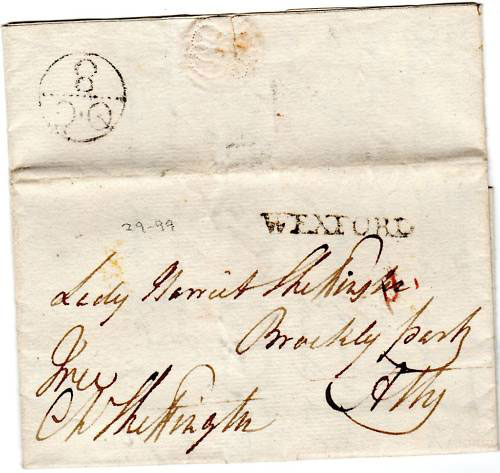 8
OC
29-99
WEXFORD
Lady Harriet Skeffington
Brockly park
Free
Athy
Ch Skeffington